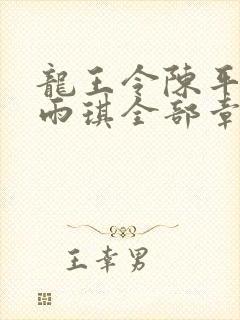 龍王令陳平
雨琪全部章
王幸男